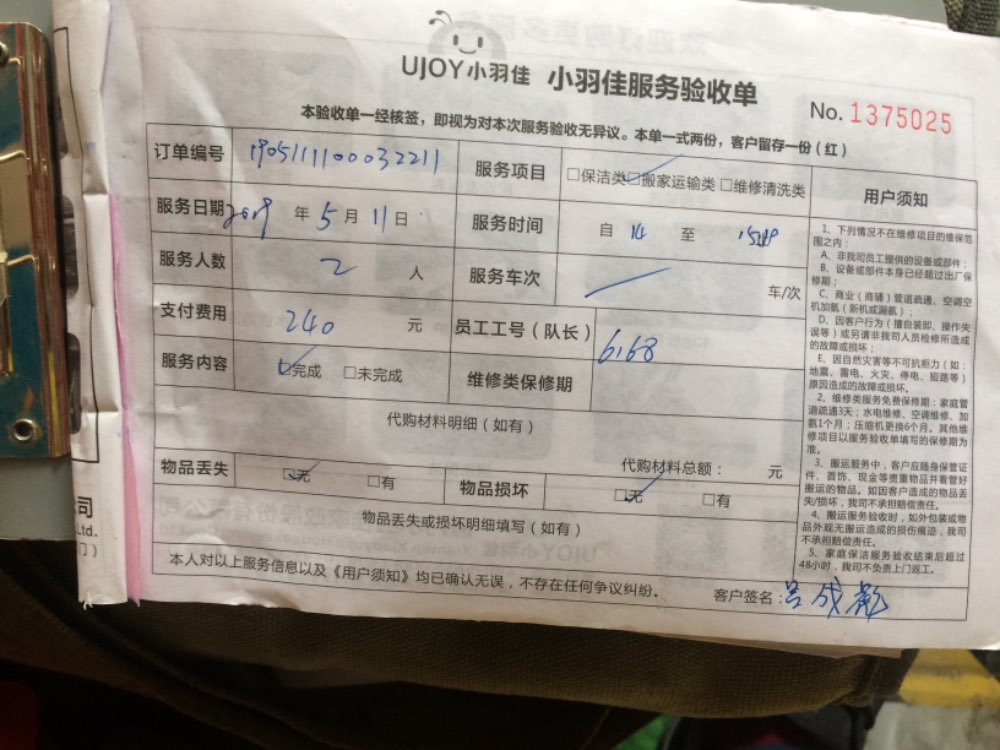 UJOY小羽佳 小羽佳服务验收单
No. 1375025
本验收单一经核签，即视为对本次服务验收无异议。本单一式两份，客户留存一份（红）
订单编号 190511110003221 服务项目 □保洁类□搬家运输类□维修清洗类
服务日期 2019 年 5 月 11 日 服务时间 自 14 至
服务人数 2 人 服务车次 车/次
支付费用 240 元 员工工号（队长） 6168
服务内容 □完成 □未完成 维修类保修期
代购材料明细（如有）
代购材料总额： 元
物品丢失 □无 □有 物品损坏 □无 □有
物品丢失或损坏明细填写（如有）
本人对以上服务信息以及《用户须知》均已确认无误，不存在任何争议纠纷。
客户签名：
用户须知
1、下列情况不在维修项目的维保范
围之内：
A、非我司员工提供的设备或部件；
B、设备或部件本身已经超过出厂保
修期；
C、商业（商铺）管道疏通、空调空
机加氨（新机或漏氨）；
D、因客户行为（擅自装卸、操作失
误等）或另请非我司人员检修所造成
的故障或损坏；
E、因自然灾害等不可抗拒力（如：
地震、雷电、火灾、停电、短路等）
原因造成的故障或损坏。
2、维修类服务免费保修期：家庭管
道疏通3天；水电维修、空调维修、加
氨1个月；压缩机更换6个月。其他维
修项目以服务验收单填写的保修期为
准。
3、搬运服务中，客户应随身保管证
件、首饰、现金等贵重物品并看管好
搬运的物品。如因客户造成的物品丢
失/损坏，我司不承担赔偿责任。
4、搬运服务验收时，如外包装或物
品外观无搬运造成的损伤痕迹，我司
不承担赔偿责任。
5、家庭保洁服务验收结束后超过
48小时，我司不负责上门返工。
司
Ltd.